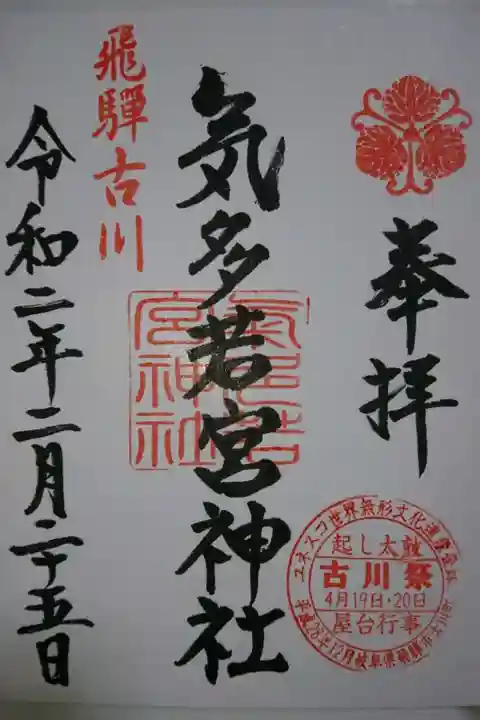 奉拝
気多若宮神社
飛騨古川
令和二年二月二十五日
氣多若
宮神社
ユネスコ世界無形文化遺産登録
起し太鼓
古川祭
4月19日・20日
屋台行事
平成28年12月岐阜県飛騨市古川町